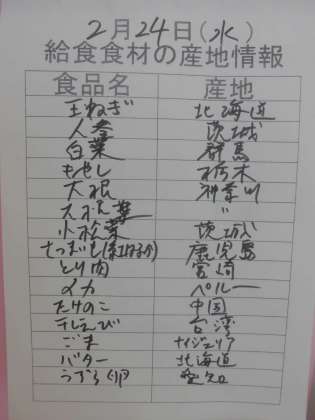 2月24日(水)
給食食材の産地情報
食品名 産地
玉ねぎ 北海道
人参 茨城
白菜 群馬
もやし 栃木
大根 神奈川
大根葉 〃
小松菜 茨城
さつまいも(紅はるか) 鹿児島
とり肉 宮崎
イカ ペルー
たけのこ 中国
干しえび 台湾
ごま ナイジェリア
バター 北海道
うずら卵 愛知